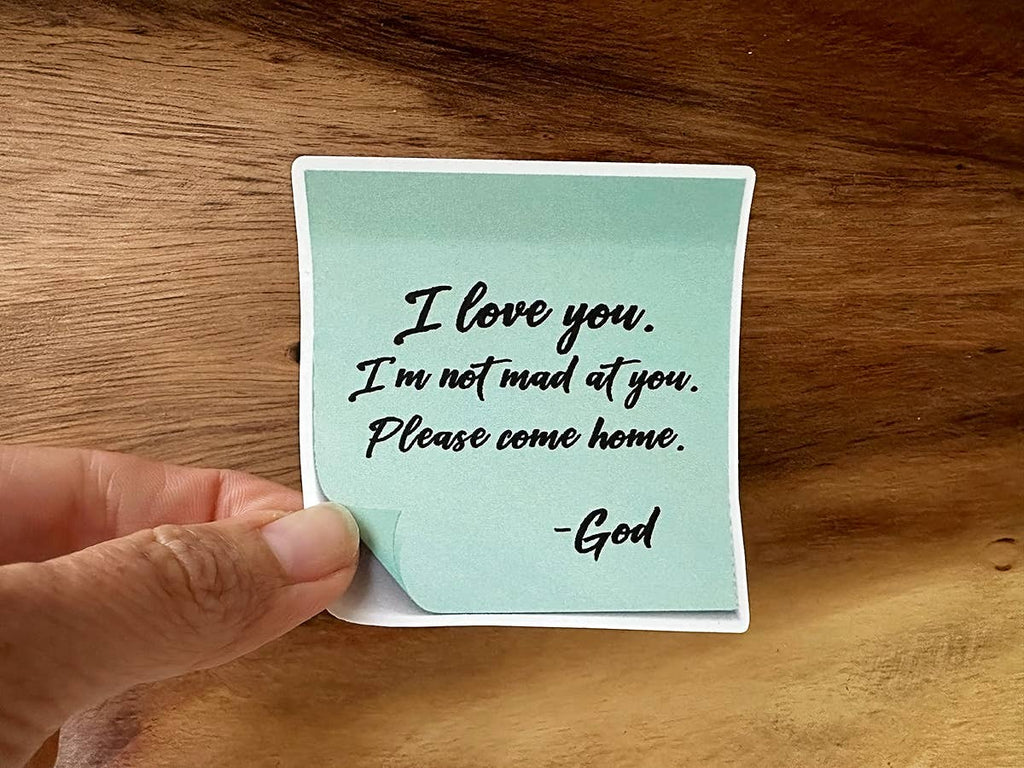 I love you.
I'm not mad at you.
Please come home.
-God